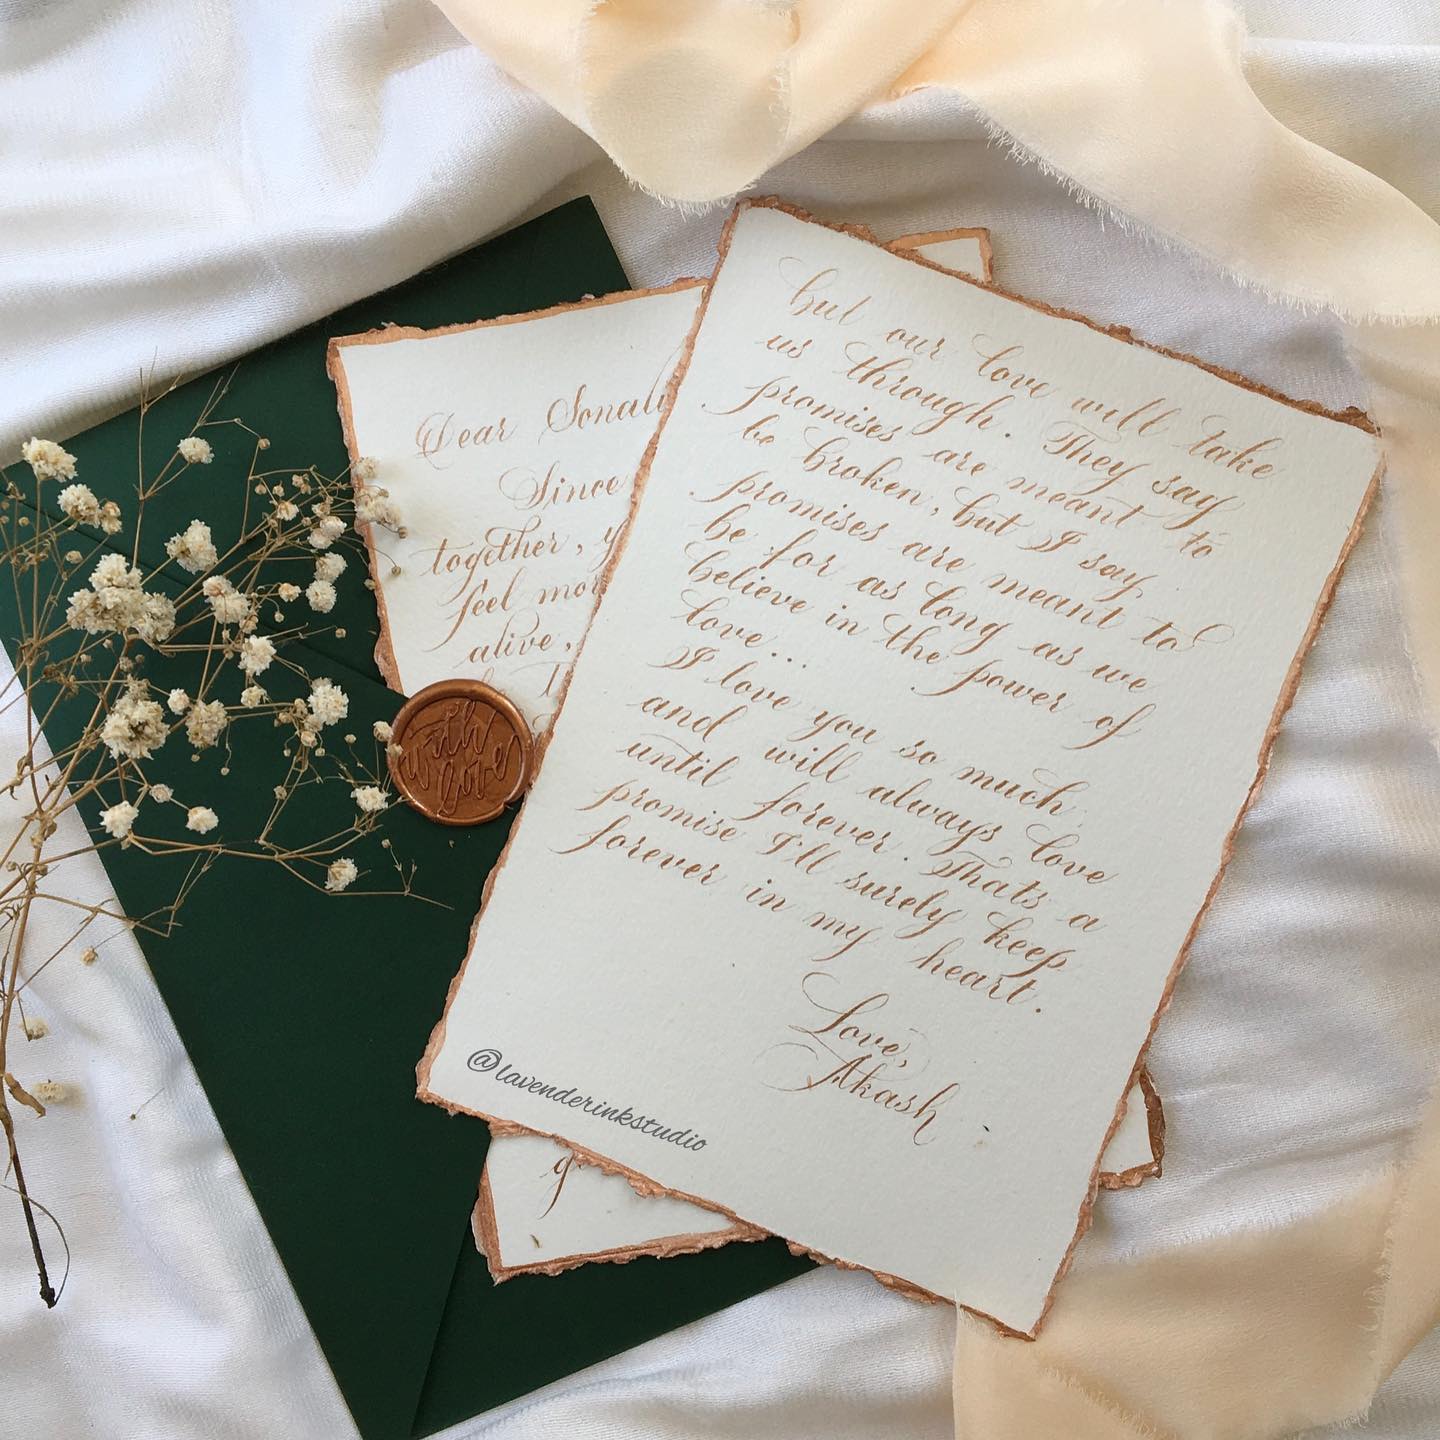 Dear Sonali
Since
together, y
feel mor
alive,
with
love
but our love will take
us through. They say
promises are meant to
be broken, but I say
promises are meant to
be for as long as we
believe in the power of
love...
I love you so much
and will always love
until forever. Thats a
promise I'll surely keep
forever in my heart.
Love,
Akash
@lavenderinkstudio